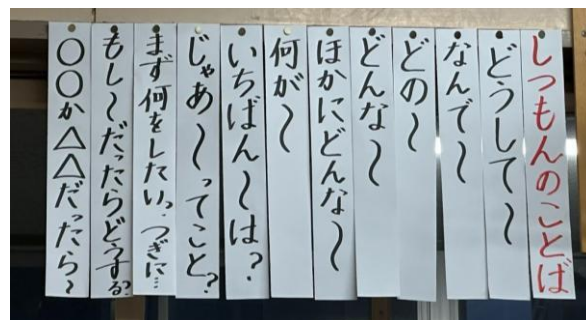 しつもんのことば
どうして〜
なんで〜
どの〜
どんな〜
ほかにどんな〜
何が〜
いちばん〜は?
じゃあ〜ってこと?
まず何をしたい?つぎに…
もし〜だったらどうする?
○○か△△だったら〜